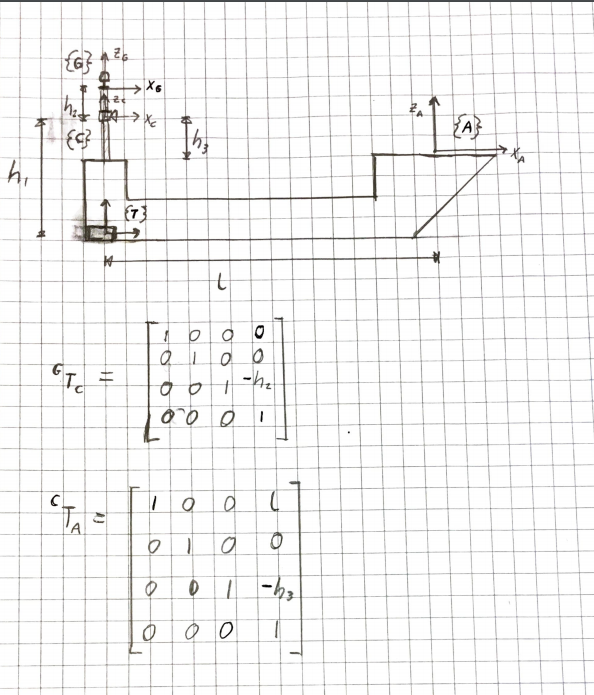 {G} z_G
x_G
h_2 z_c
x_c
{C}
h_3
h_1
z_A {A}
x_A
{T}
L
^G T_C = [ 1 0 0 0
0 1 0 0
0 0 1 -h_2
0 0 0 1 ]
^C T_A = [ 1 0 0 L
0 1 0 0
0 0 1 -h_3
0 0 0 1 ]